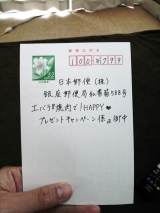 郵便はがき
52
100 8799
日本郵便（株）
銀座郵便局私書箱588号
エバラ焼肉で！HAPPY♥
プレゼントキャンペーン係 御中